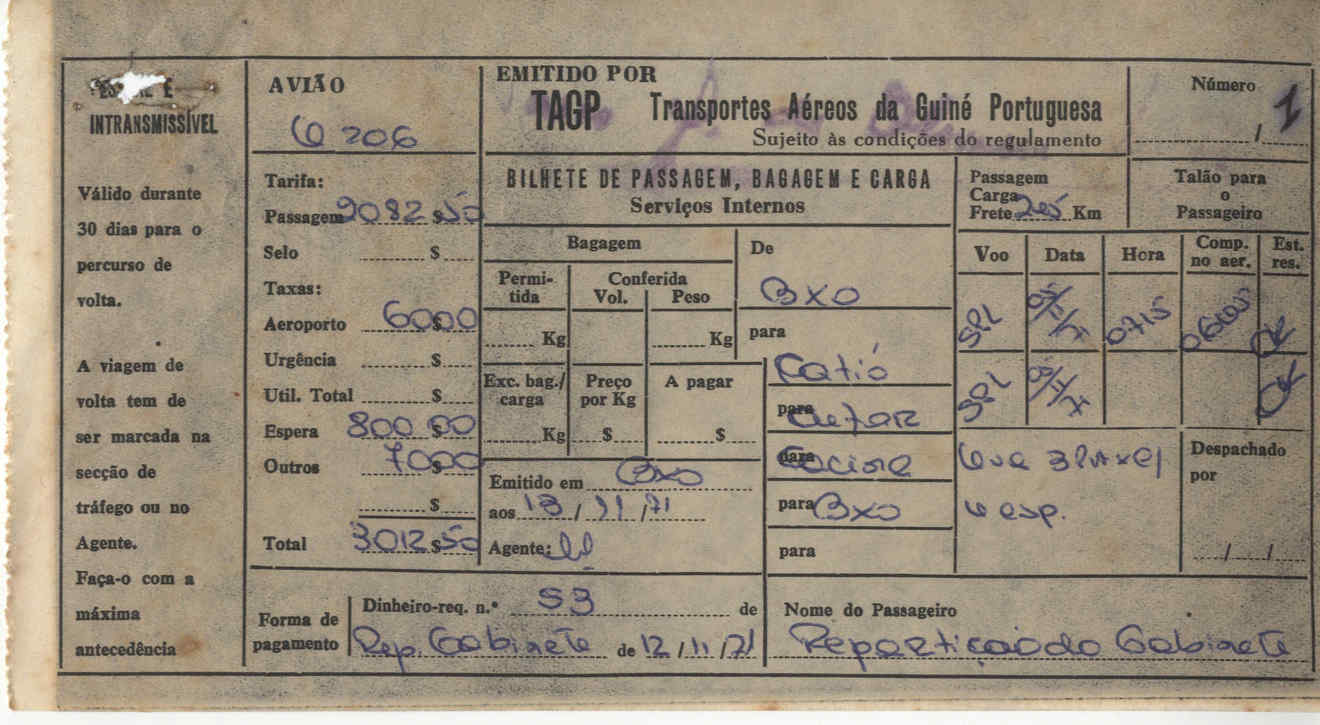 INTRANSMISSÍVEL
Válido durante
30 dias para o
percurso de
volta.
A viagem de
volta tem de
ser marcada na
secção de
tráfego ou no
Agente.
Faça-o com a
máxima
antecedência
AVIÃO
206
Tarifa:
Passagem 2082 $ 50
Selo $
Taxas:
Aeroporto 60 $ 00
Urgência $
Util. Total $
Espera 800 $ 00
Outros 70 $ 00
$
Total 3012 $ 50
EMITIDO POR
TAGP Transportes Aéreos da Guiné Portuguesa
Sujeito às condições do regulamento
BILHETE DE PASSAGEM, BAGAGEM E CARGA
Serviços Internos
Bagagem
Permi-
tida
Conferida
Vol. Peso
Kg Kg
Exc. bag./
carga
Preço
por Kg
A pagar
Kg $ $
Emitido em BXO
aos 13 / 11 / 71
Agente:
De
BXO
para
Catió
para
para
para BXO
para
Número
/ 1
Passagem
Carga
Frete Km
Talão para
o
Passageiro
Voo Data Hora Comp.
no aer. Est.
res.
SPL 0715 OK
SPL OK
esp.
Despachado
por
/ /
Forma de
pagamento
Dinheiro-req. n.º 53 de
Rep. Gabinete de 12 / 11 / 71
Nome do Passageiro
Repartição do Gabinete